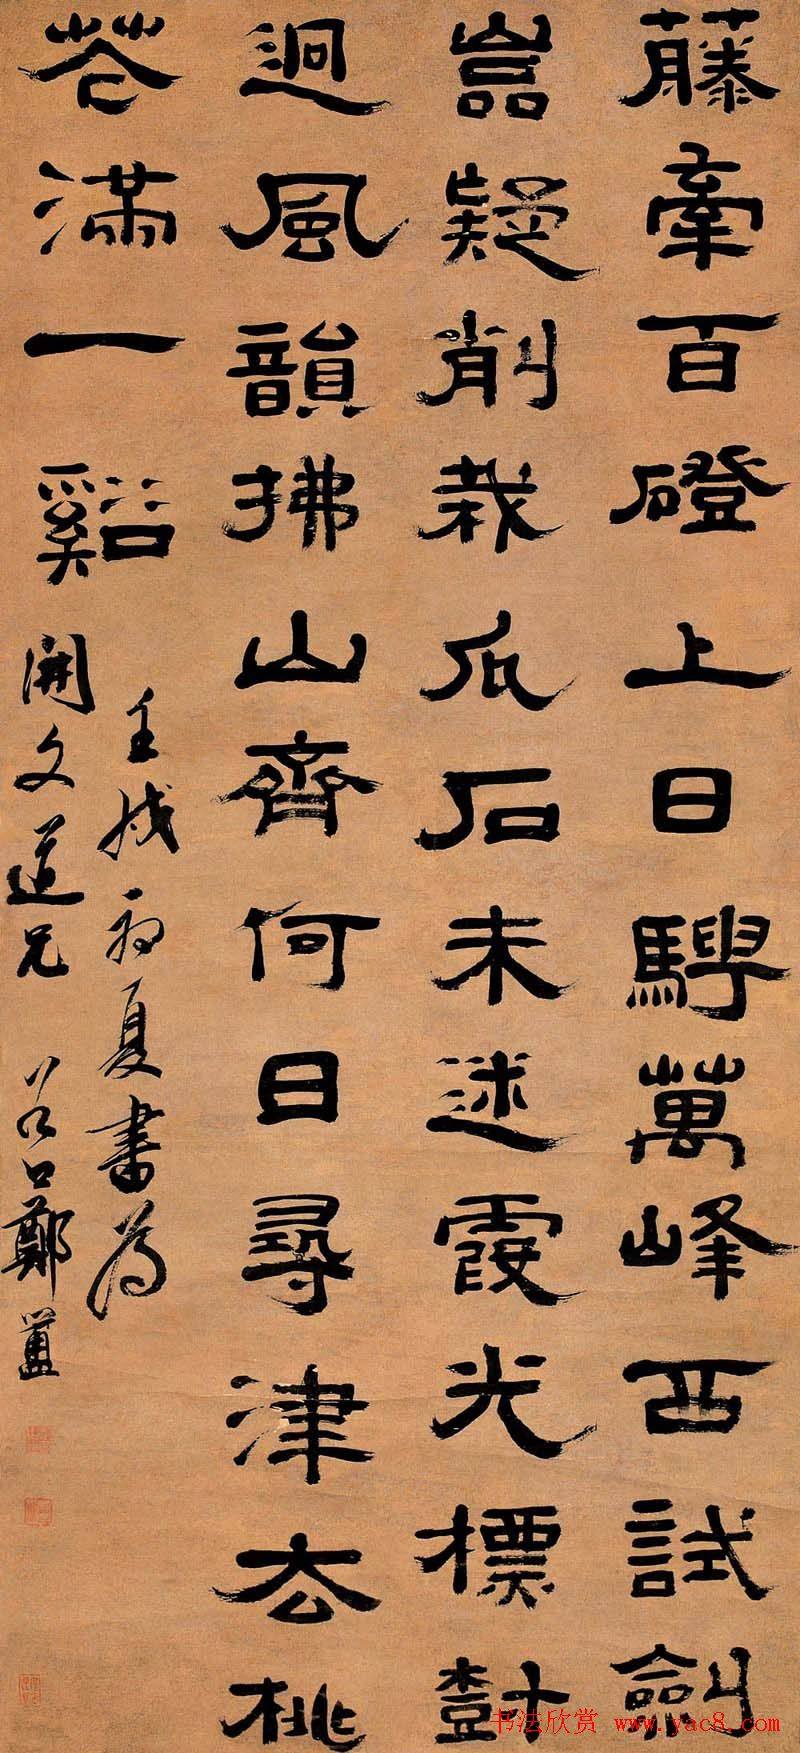 藤牽百磴上日騁萬峰西試劍
嵒疑削栽瓜石未迷霞光標樹
迥風韻拂山齊何日尋津去桃
花滿一谿
壬戌初夏書為
開文道兄 谷口鄭簠
书法欣赏 www.yac8.com